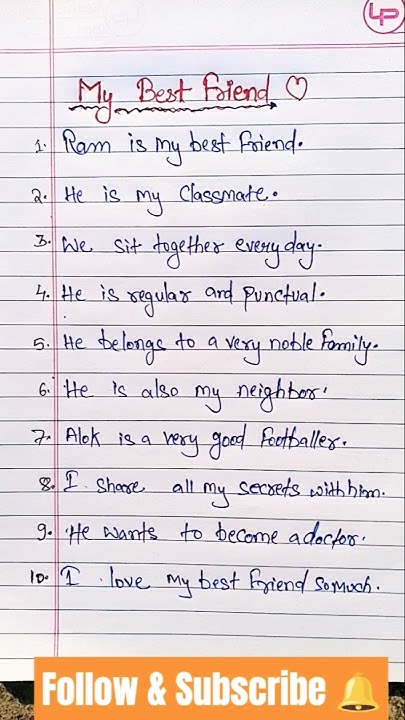 LP
My Best Friend ♡
1. Ram is my best friend.
2. He is my Classmate.
3. We sit together everyday.
4. He is regular and punctual.
5. He belongs to a very noble family.
6. He is also my neighbor.
7. Alok is a very good footballer.
8. I share all my secrets with him.
9. He wants to become a doctor.
10. I love my best friend so much.
Follow & Subscribe 🔔